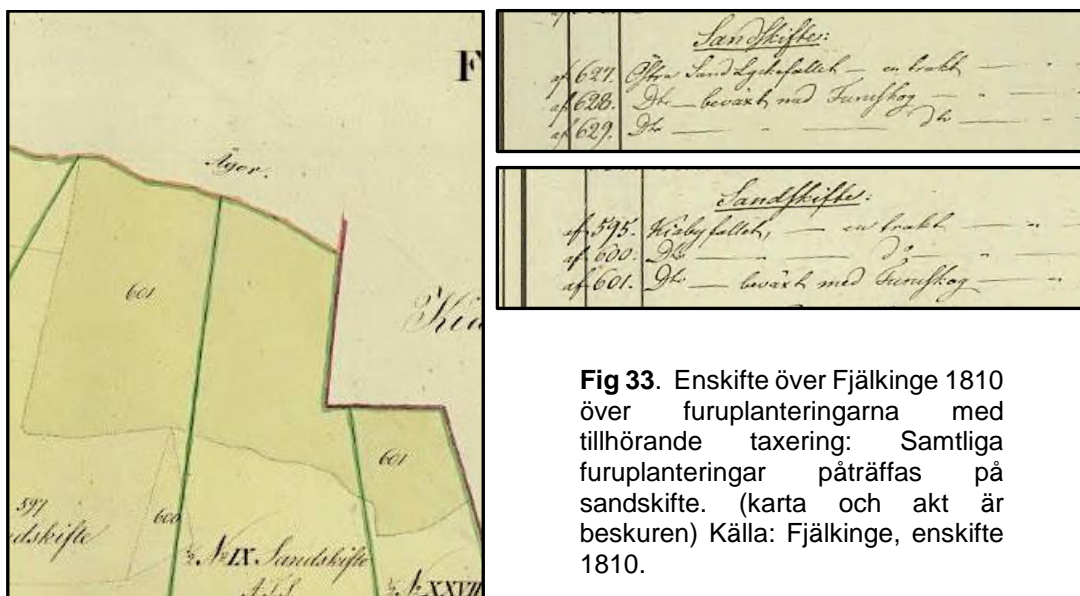 F
Ägor.
601
601
597
600
Sandskifte
№ IX Sandskifte
№ XXVII
Sandskifte:
af 627. Östra Sand Lyckefallet — en trakt — " —
af 628. Dto — beväxt med Furuskog — " —
af 629. Dto — " — Dto —
Sandskifte:
af 595. Kiabyfallet, — en trakt — " —
af 600. Dto — do — " —
af 601. Dto — beväxt med Furuskog — "
Fig 33. Enskifte över Fjälkinge 1810
över furuplanteringarna med
tillhörande taxering: Samtliga
furuplanteringar påträffas på
sandskifte. (karta och akt är
beskuren) Källa: Fjälkinge, enskifte
1810.